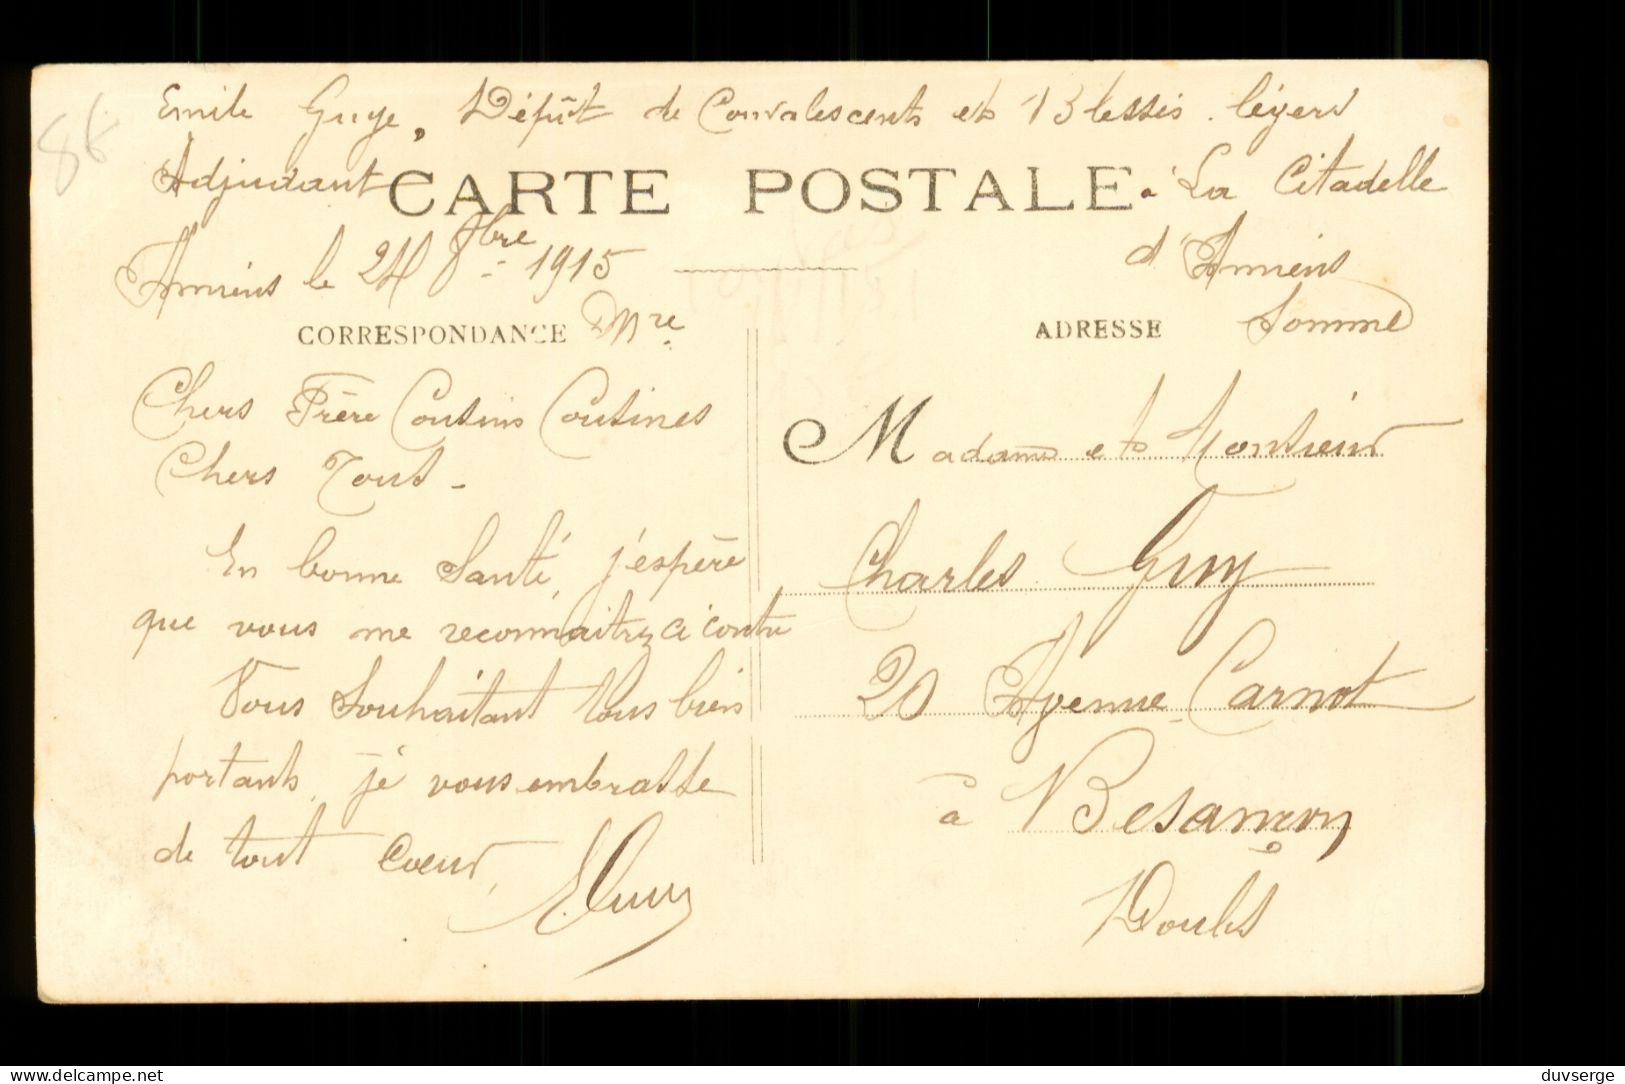 86
Emile Guye, Dépôt de Convalescents et Blessés légers
Adjudant à La Citadelle
CARTE POSTALE
d'Amiens
Somme
Amiens le 24 8bre 1915
CORRESPONDANCE
ADRESSE
Chers Frère Cousins Cousines
Chers Tous -
En bonne Santé, j'espère
que vous me reconnaitrez ci contre
Vous Souhaitant tous bien
portants, je vous embrasse
de tout cœur,
Madame et Monsieur
Charles Guy
20 Avenue Carnot
à Besançon
Doubs
delcampe.net
duvserge